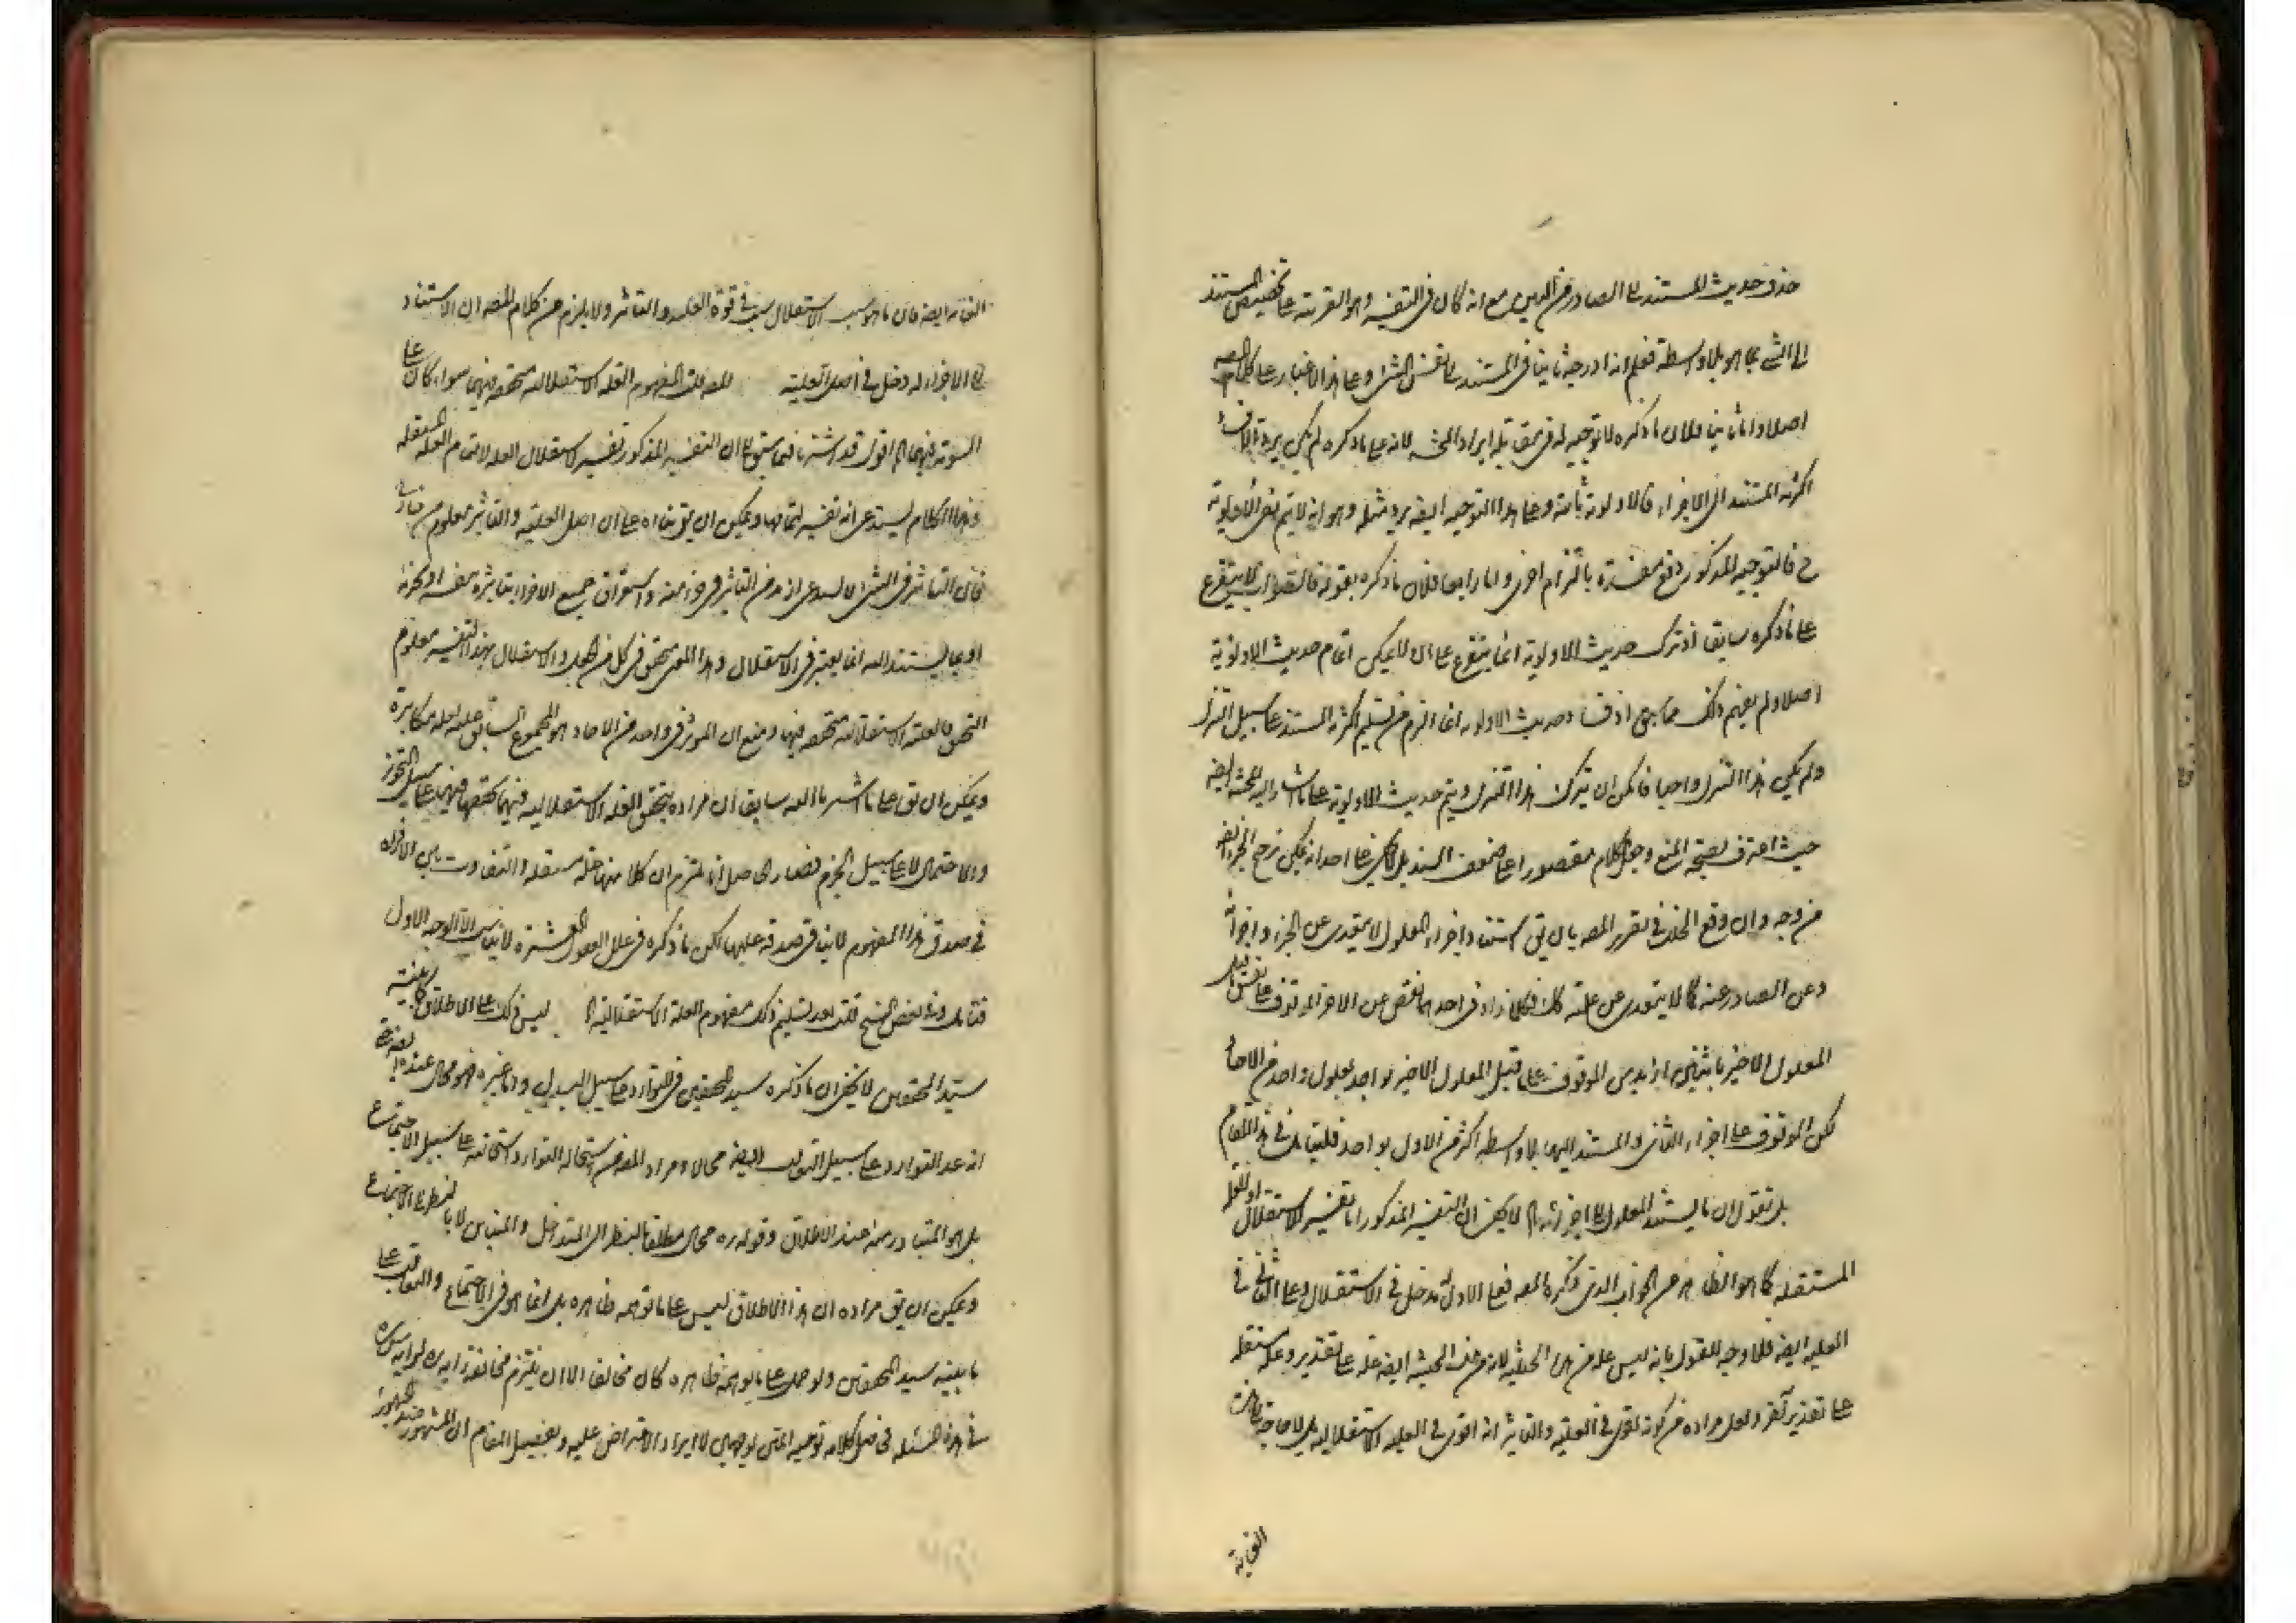 حذف حديث المستند الى الصادر من البين مع انه كان فى التفسير وهو القرينة على تخصيص المستند
الى الشئ بما هو بلا واسطة فعلم انه ادرجه ثانيا فى المستند الى نفس الشئ وعلى هذا لا غبار على كلام المصه
اصلا واما ثانيا فلان ما ذكره لا توجيه له فى مقابلة ايراد المحشى لانه على ما ذكره لم يكن
اكثرية المستند الى الاجزاء فالاولوية ثابتة وعلى هذا التوجيه ايضه يرد مثله وهو انه لا يتم نفى الاولوية
ح فالتوجيه المذكور دفع مفسدة بالتزام اخرى واما رابعا فلان ما ذكره بقوله فالصواب لا يتفرع
على ما ذكره سابقا اذ ترك حديث الاولوية انما يتفرع على ان لا يمكن اتمام حديث الاولوية
اصلا ولم يفهم ذلك مما سبق اذ فساد حديث الاولوية انما لزم من تسليم اكثرية المستند على سبيل التنزل
ولم يكن هذا التنزل واجبا فامكن ان يترك هذا التنزل ويتم حديث الاولوية على ما اشار اليه المحشى ايضه
حيث اعترف بصحة المنع وجعل الكلام مقصورا على ضعف السند
من وجه وان وقع الخلل فى تقرير المصه بان يق استناد اجزاء المعلول لا يتعدى عن الجزء واجزائه
وعن الصادر عنه كما لا يتعدى عن علة كل فكلما زاد فى احدهما نقص عن الاخر الموقوف على نفس
المعلول الاخير باثنين ازيد من الموقوف على قبل المعلول الاخير بواحد معلول واحد من الاحاد
لكن الموقوف على اجزاء الثانى والمستند اليها بلا واسطة اكثر من الاول بواحد فليتامل فى هذا المقام
بل نقول ان ما يستند المعلول الى اجزائه الخ لا يخفى ان التفسير المذكور اما تفسير للاستقلال او للعلة
المستقلة كما هو الظاهر من الجواب الذى ذكره المصه فعلى الاول له مدخل فى الاستقلال وعلى الثانى فى
العلية ايضه فلا وجه للقول بانه ليس علة من هذه الحيثية لانه من تلك الحيثية ايضه علة على تقدير وعلة مستقلة
على تقدير آخر ولعل مراده من كونه اقوى فى العلية والتاثير انه اقوى فى العلية الاستقلالية
فان ما هو سبب الاستقلال سبب فى قوة العلية والتاثير ولا يلزم من كلام المصه ان الاستناد
الى الاجزاء له دخل فى اصل العلية لمفهوم العلة الاستقلالية متحققة فيهما سواء كان على
السوية فيهما الخ اقول قد اشرنا فيما سبق الى ان التفسير المذكور تفسير لاستقلال العلة لا لتمام العلة المستقلة
وهذا الكلام يستدعى انه تفسير لتمامها ويمكن ان يق بناءه على ان اصل العلية والتاثير معلوم من خارج
فان التاثير فى الشئ لا يستدعى ازيد من التاثير فى جزء منه واستغراق جميع الاجزاء بتاثيره بنفسه او بجزئه
او بما يستند اليه انما يعتبر فى الاستقلال وهذا المعنى متحقق فى كل من العلل والاستقلال بهذا التفسير معلوم
التحقق فالعلة الاستقلالية متحققة فيها ومنع ان المؤثر فى واحد من الاحاد هو المجموع السابق عليه لعله مكابرة
ويمكن ان يق على ما اشرنا اليه سابقا ان مراده بتحقق العلة الاستقلالية فيهما تحققها فيهما على سبيل التجوز
والاحتمال لا على سبيل الجزم فصار الحاصل انا نلتزم ان كلا منها علة مستقلة والتفاوت بين الافراد
فى صدق هذا المفهوم لا ينافى صدقه عليها لكن ما ذكره فى علل العقول العشرة لا يناسب الا الوجه الاول
فتامل وفى بعض النسخ قلت بعد تسليم ذلك مفهوم العلة الاستقلالية الخ ليس ذلك على الاطلاق كما بينه
سيد المحققين لا يخفى ان ما ذكره سيد المحققين فى التوارد على سبيل البدل واما غيره فهو محال عنده
انه عد التوارد على سبيل التعاقب ايضه محالا ومراد المعترض استحالة التوارد استحالته على سبيل الاجتماع
بل هو المتبادر منه عند الاطلاق وقوله ره محال مطلقا بالنظر الى المتداخل والمتباين لا بالنظر الى الاجتماع
ويمكن ان يق مراده ان هذا الاطلاق ليس على ما توهمه ظاهره بل انما هو فى الاجتماع والتعاقب على
ما بينه سيد المحققين ولو حمل على ما يوهمه ظاهره كان مخالفا الا ان يلتزم مخالفة رايه
فى هذه المسئلة فحمل كلامه توجيه المتن بوجهين لا ايراد الاعتراض عليه وتفصيل المقام ان المشهور عند الجمهور